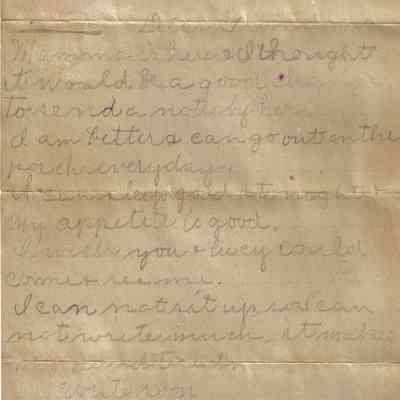 Mamma is here & I thought
it would be a good
to send a note by her
I am better & can go out on the
porch everyday.
I can sleep good at night &
my appetite is good.
I wish you & Lucy could
come & see me.
I can not sit up so I can
not write much, it makes